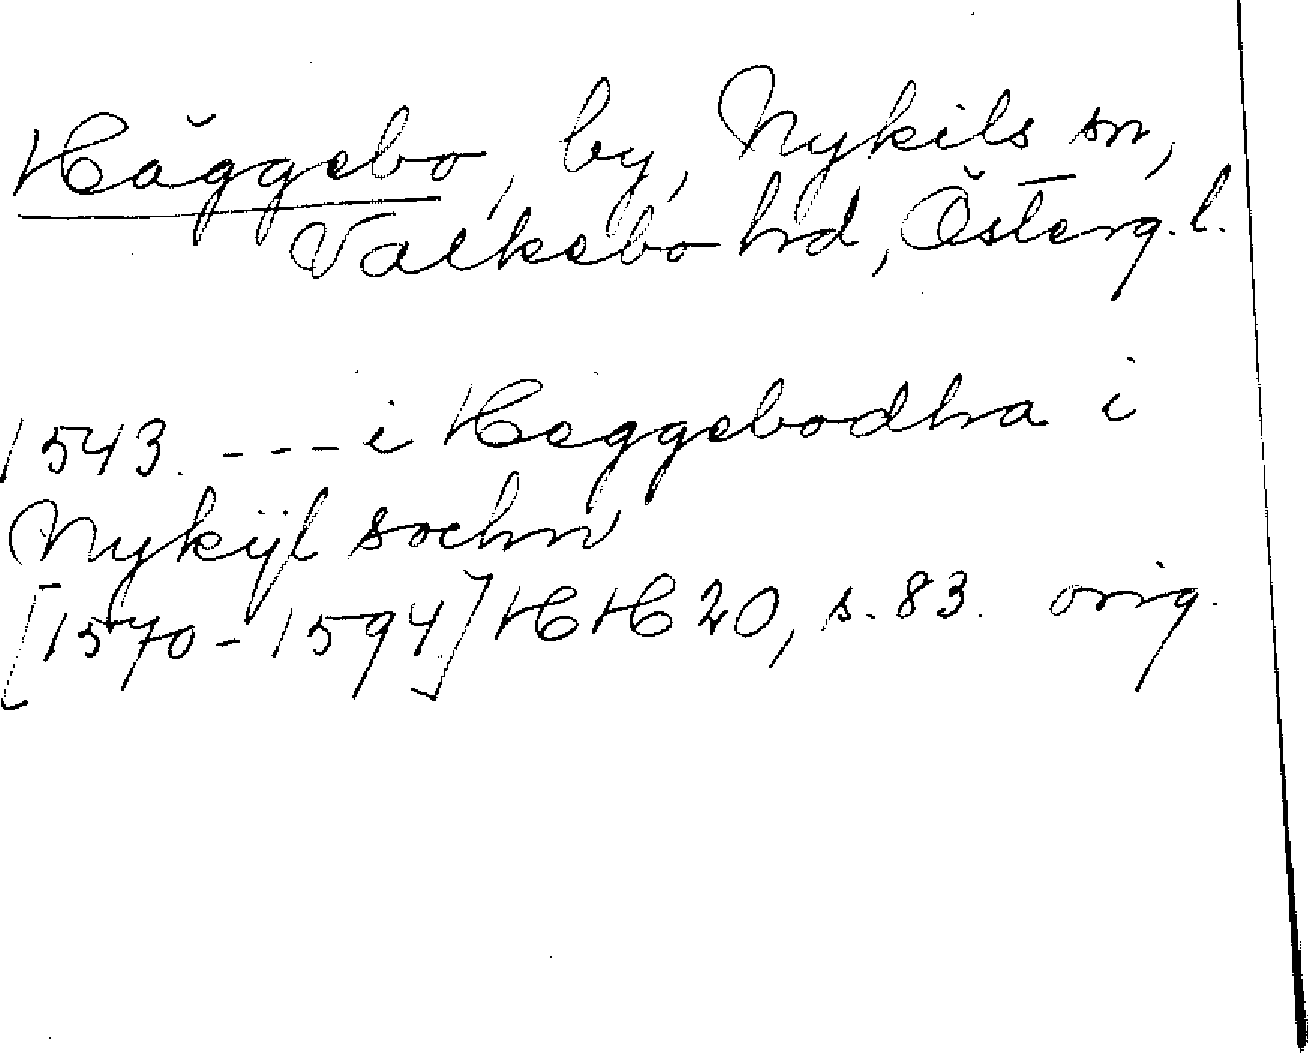 Häggebo, by, Nykils sn,
Valkebo hd, Österg.l.
1543. --- i Heggebodha i
Nykijl sochn
[1570-1594] HH 20, s. 83. orig.